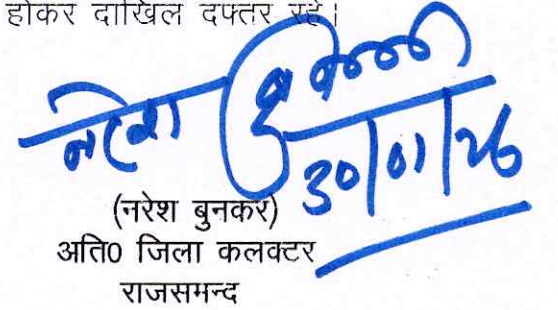 होकर दाखिल दफ्तर रहे।
नरेश
30/01/26
(नरेश बुनकर)
अति0 जिला कलक्टर
राजसमन्द